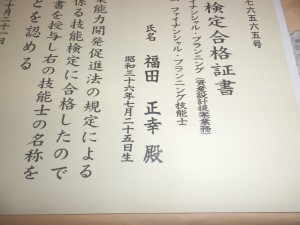 七六五六五号
検定合格証書
ファイナンシャル・プランニング(資産設計提案業務)
ファイナンシャル・プランニング技能士
氏名 福田 正幸 殿
昭和三十六年七月二十五日生
業能力開発促進法の規定による
係る技能検定に合格したので
書を授与し右の技能士の名称を
ことを認める
十月二十一日